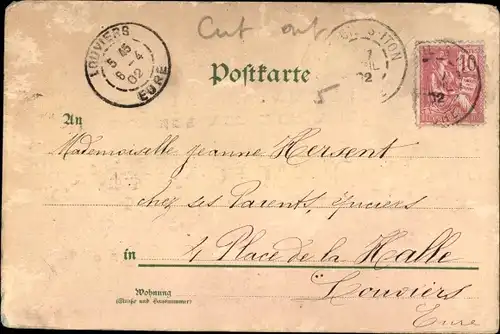 Cut out
LOUVIERS
5 45
6 - 4
02
EURE
TON
1
02
10
02
Postkarte
5
An
Mademoiselle Jeanne Hersent
chez ses Parents, épiciers
in 4 Place de la Halle
Louviers
Eure
Wohnung
(Straße und Hausnummer)